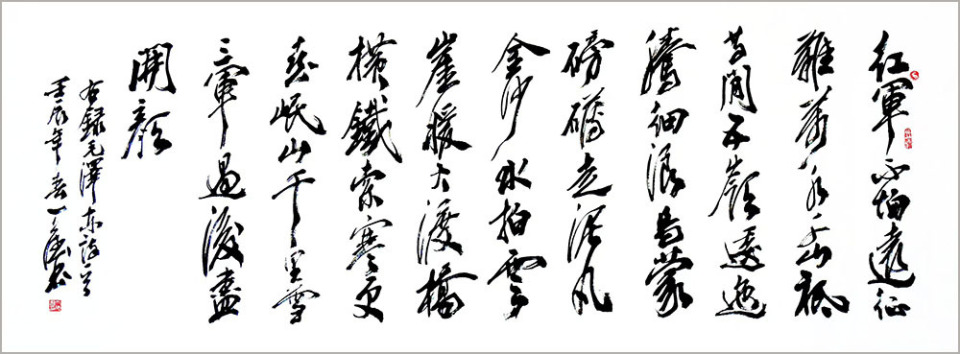 紅軍不怕遠征
難萬水千山祗
等閑五嶺逶迤
騰細浪烏蒙
磅礴走泥丸
金沙水拍雲
崖暖大渡橋
横鐵索寒更
喜岷山千里雪
三軍過後盡
開顏
右録毛澤东詩一首
壬辰年春